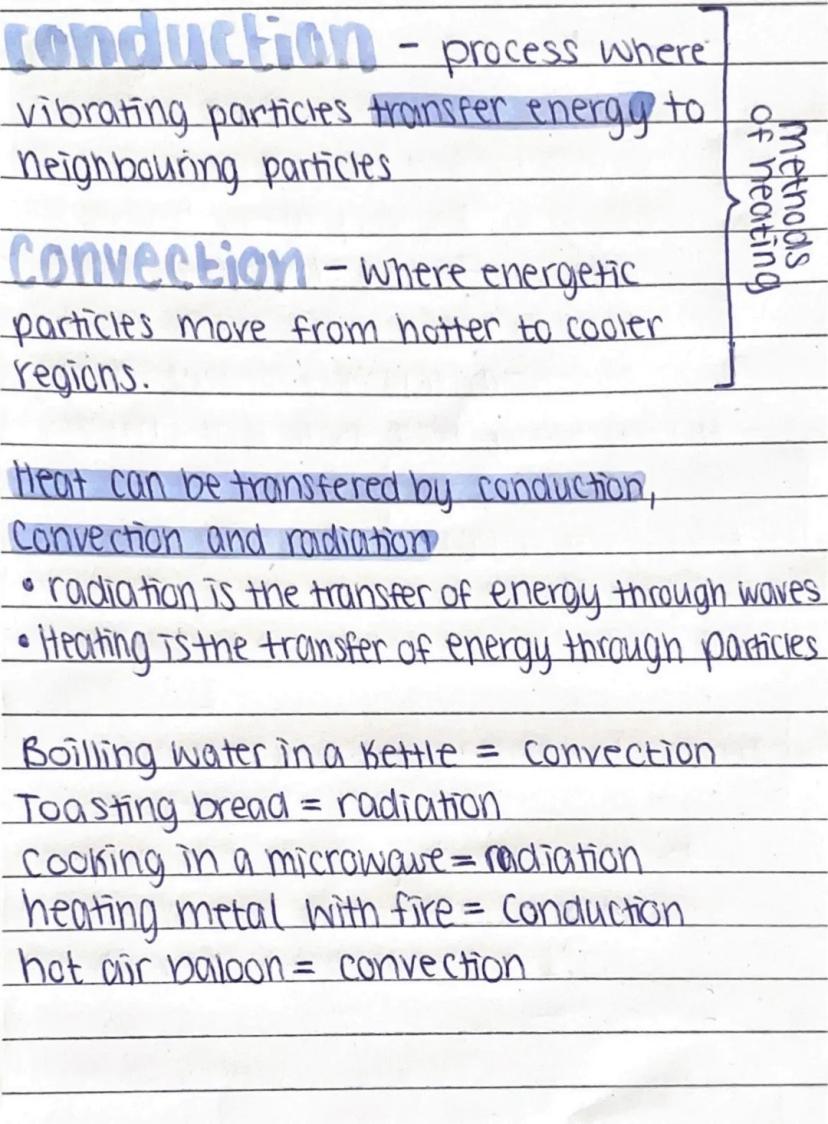 conduction - process where
vibrating particles transfer energy to
neighbouring particles
Convection - where energetic
particles move from hotter to cooler
regions.
methods
of heating
Heat can be transfered by conduction,
convection and radiation
• radiation is the transfer of energy through waves
• Heating is the transfer of energy through particles
Boilling water in a kettle = convection
Toasting bread = radiation
cooking in a microwave = radiation
heating metal with fire = conduction
hot air baloon = convection